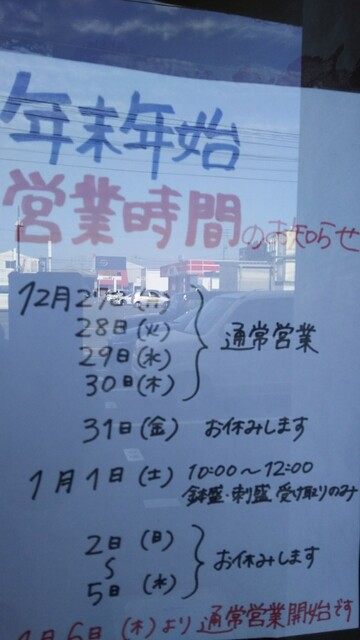 年末年始
営業時間のお知らせ
12月27日(月)
28日(火)
29日(水)
30日(木)
通常営業
31日(金) お休みします
1月1日(土) 10:00～12:00
鉢盛・刺盛 受け取りのみ
2日(日)
～
5日(水)
お休みします
1月6日(木)より通常営業開始です